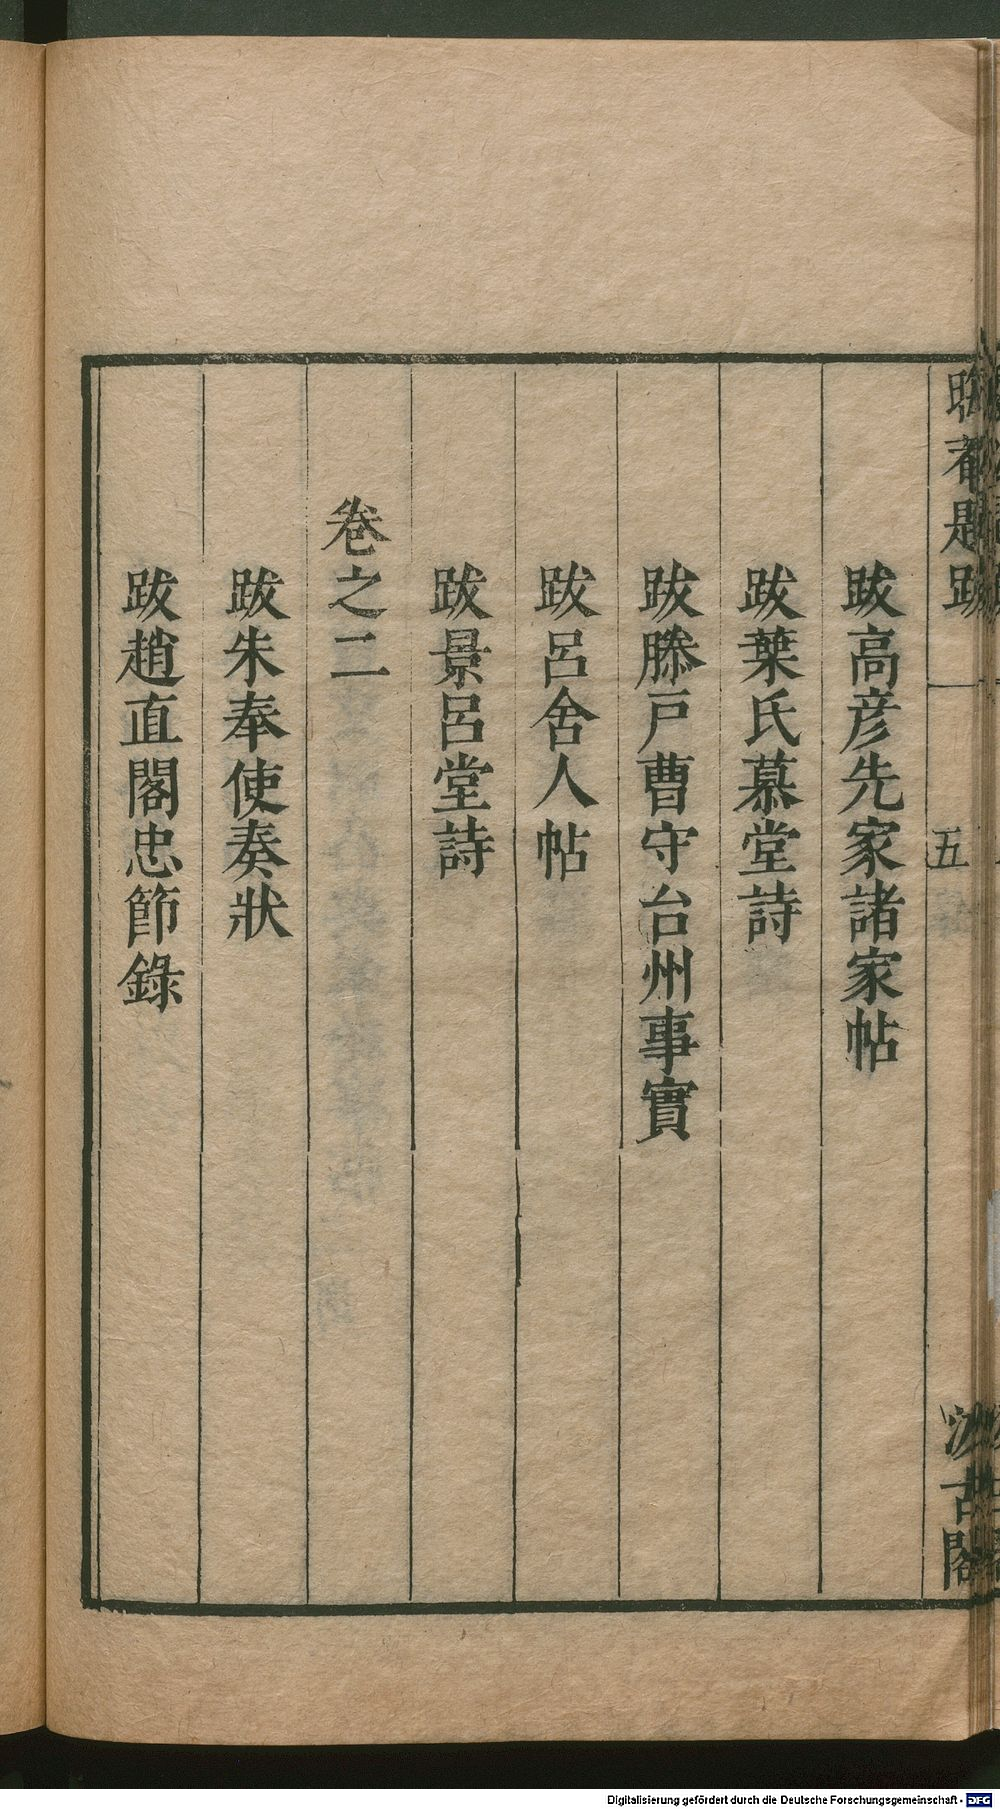 晦菴題跋
五
汲古閣
跋高彦先家諸家帖
跋葉氏慕堂詩
跋滕戸曹守台州事實
跋呂舍人帖
跋景呂堂詩
卷之二
跋朱奉使奏狀
跋趙直閣忠節錄
Digitalisierung gefördert durch die Deutsche Forschungsgemeinschaft - DFG